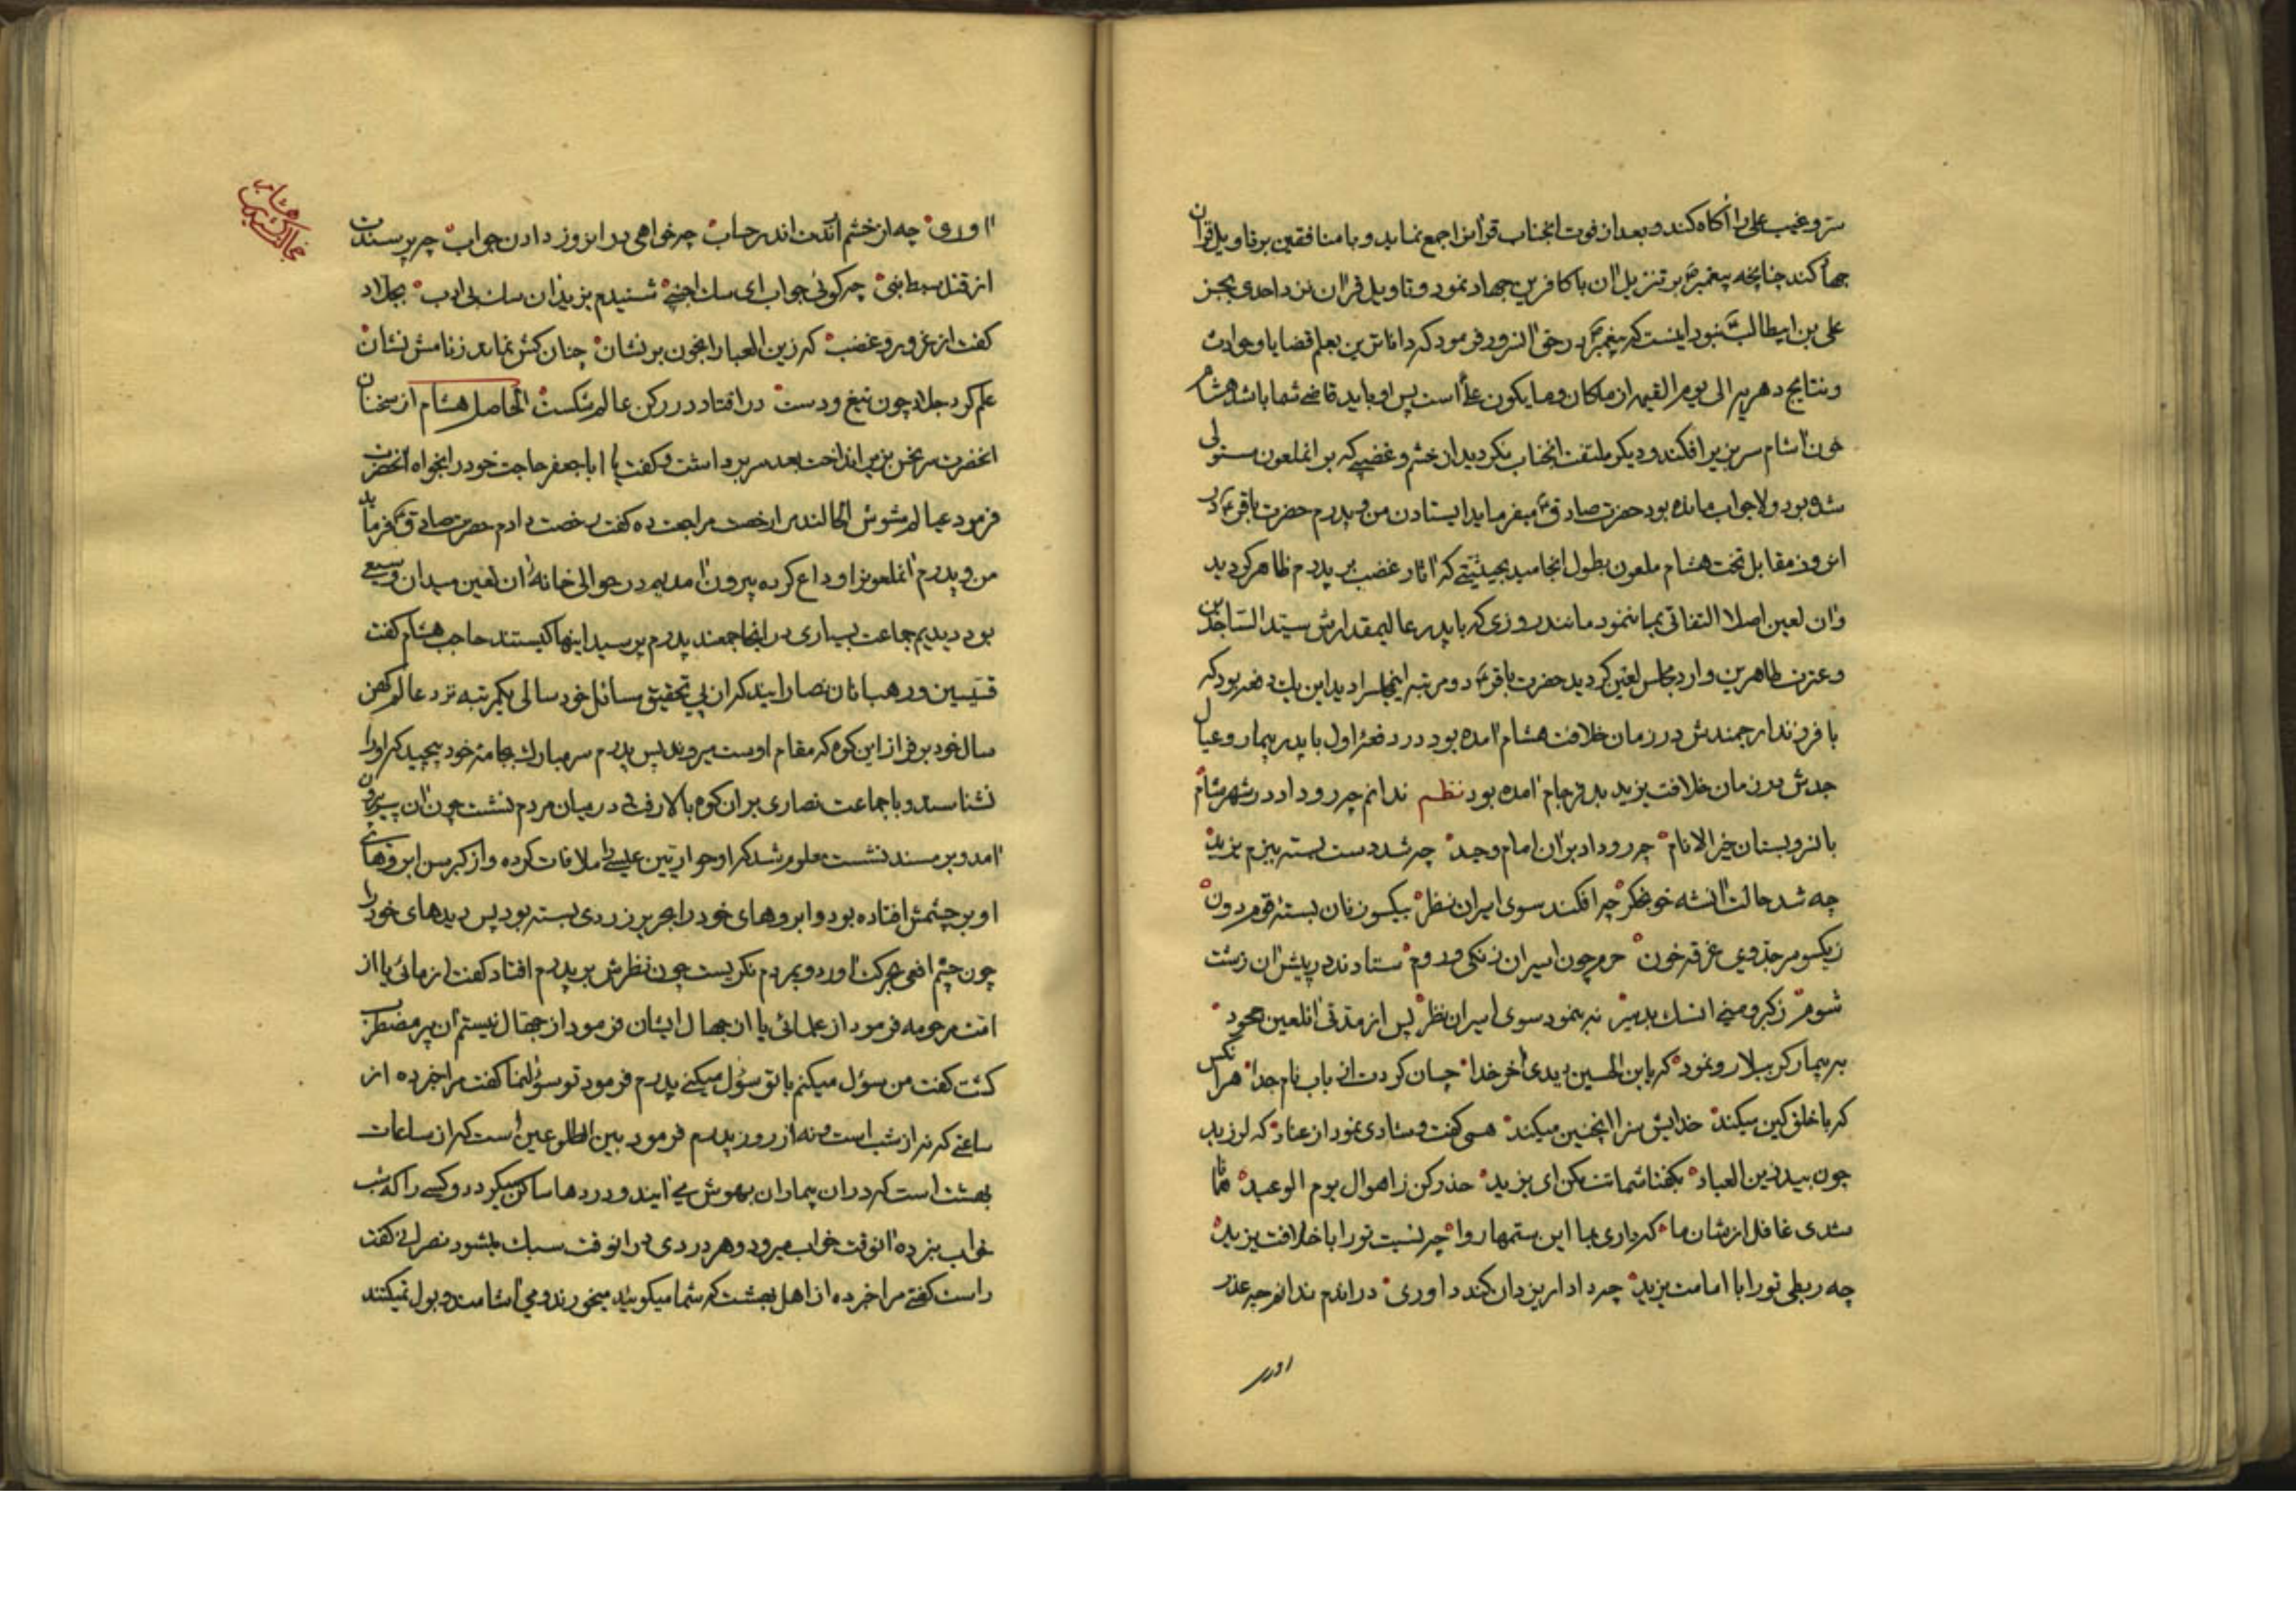 سر و غیب علی را آکاه کند و بعد از فوت انجناب قرانرا جمع نماید و با منافقین بر تاویل قران
جهاد کند چنانچه پیغمبر بر تنزیل ان با کافرین جهاد نمود و تاویل قران نزد احدی بجز
علی بن ابیطالب نبود اینست که پیغمبر در حق انسرور فرمود که داناترین بعلم قضایا و حوادث
و نتایج دهریه الی یوم القیمه از ماکان و ما یکون علی است پس او باید قاضی شما باشد هشام
خون اشام سر بزیر افکند و دیکر ملتفت انجناب نکردید از خشم و غضبی که بر انملعون مستولی
شده بود و لاجواب مانده بود حضرت صادق میفرماید ایستادن من و پدرم حضرت باقر در
انروز مقابل تخت هشام ملعون بطول انجامید بحیثیتی که اثار غضب بر پدرم ظاهر کردید
و ان لعین اصلا التفاتی بما ننمود مانند روزی که با پدر عالیمقدارش سید الساجدین
و عترت طاهرین وارد مجلس لعین کردید حضرت باقر دو مرتبه اینمجلسرا دید این یک دفعه بود که
با فرزند ارجمندش در زمان خلافت هشام امده بود در دفعه اول با پدر بیمار و عیال
جدش در زمان خلافت یزید بد فرجام امده بود نظم ندانم چه رو داد در شهر شام
بانرو بستان خیر الانام چه رو داد بر ان امام وحید چه شد دست بسته ببزم یزید
چه شد حالت انشه خو نجکر چه افکند سوی اسیران نظر بیکسو زنان بسته قوم دون
زیکسو سر جد وی غرقه خون حرم چون اسیران زنکی و روم ستادند در پیش ان زشت
شوم ز کبر و منی انسک بد سیر نه بنمود سوی اسیران نظر پس از مدتی انلعین جحود
به بیمار کربلا رو نمود که یابن الحسین دیدی اخر خدا چسان کردت از باب نام جدا هر انکس
که با خلق کین میکند خدایش سزا اینچنین میکند همی گفت و شادی نمود از عناد که لرزید
چون بید زین العباد بکفتا شماتت مکن ای یزید حذر کن ز اهوال یوم الوعید همانا
شدی غافل از شان ما که داری بما این ستمها روا چه نسبت تو را با خلافت یزید
چه ربطی تو را با امامت یزید چه دادار یزدان کند داوری در اندم ندانم چه عذر
اوری
اوری چه از خشم اندت اندر حساب چه خواهی در انروز دادن جواب چه پرسندت
از قتل سبط نبی چه کوئی جواب ای سک اجنبی شنیدم یزید ان سک بی ادب بجلاد
کفت از غرور و غضب که زین العبا را بخون بر نشان چنان کش نماند ز نامش نشان
علم کرد جلاد چون تیغ و دست در افتاد در رکن عالم شکست الحاصل هشام از سخنان
انحضرت سر نحس بزیر انداخت بعد سر برداشت و کفت یا ابا جعفر حاجت خود را بخواه انحضرت
فرمود عیالم مشوش الحالند مرا رخصت مراجعت ده کفت رخصت دادم حضرت صادق فرماید
من و پدرم انملعونرا وداع کرده بیرون امدیم در حوالی خانه ان لعین میدان وسیعی
بود دیدیم جماعت بسیاری در انجا جمعند پدرم پرسید اینها کیستند حاجب هشام کفت
قسیسین و رهبانان نصارایند که از پی تحقیق مسائل خود سالی یکمرتبه نزد عالم کهن
سال خود بر فراز این کوه که مقام اوست میروند پس پدرم سر مبارک بجامه خود پیچید که او را
نشناسند و با جماعت نصاری بران کوه بالا رفتی در میان مردم نشست چون ان پیر فانی
امد و بر مسند نشست معلوم شد که او حواریین عیسی را ملاقات کرده و از کبر سن ابروهای
او بر چشمش افتاده بود و ابروهای خود را بحریر زردی بسته بود پس دیدهای خود را
چون چشم افعی بحرکت اورد و بمردم نکریست چون نظرش بر پدرم افتاد کفت از مائی یا از
امت مرحومه فرمود از علمائی یا از جهال ایشان فرمود از جهال نیستم ان پیر مضطرب
کشت کفت من سؤل میکنم یا تو سؤل میکنی پدرم فرمود تو سؤل نما کفت مرا خبر ده از
ساعتی که نه از شب است و نه از روز پدرم فرمود بین الطلوعین است که از ساعات
بهشت است که در ان بیماران بهوش می ایند و دردها ساکن میکردد و کسی را که شب
خواب نبرده انوقت خواب میرود و هر دردی در انوقت سبک میشود نصرانی کفت
راست کفتی مرا خبر ده از اهل بهشت که شما میکوئید میخورند و می اشامند و بول نمیکنند